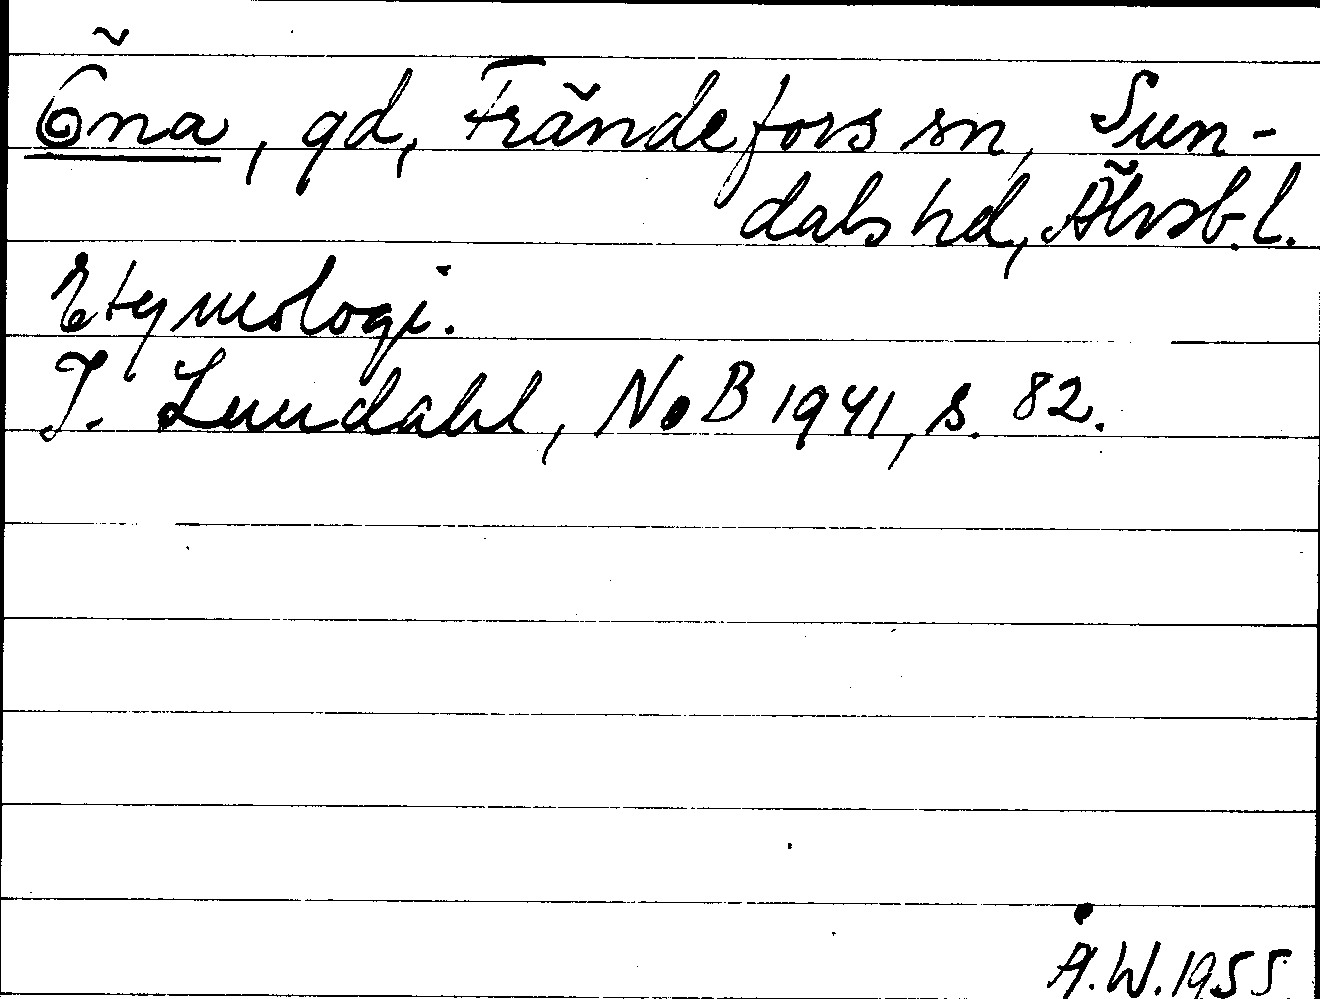 Öna, gd, Frändefors sn, Sun-
dals hd, Älvsb. l.
Etymologi.
I. Lundahl, NoB 1941, s. 82.
Å.W. 1955.